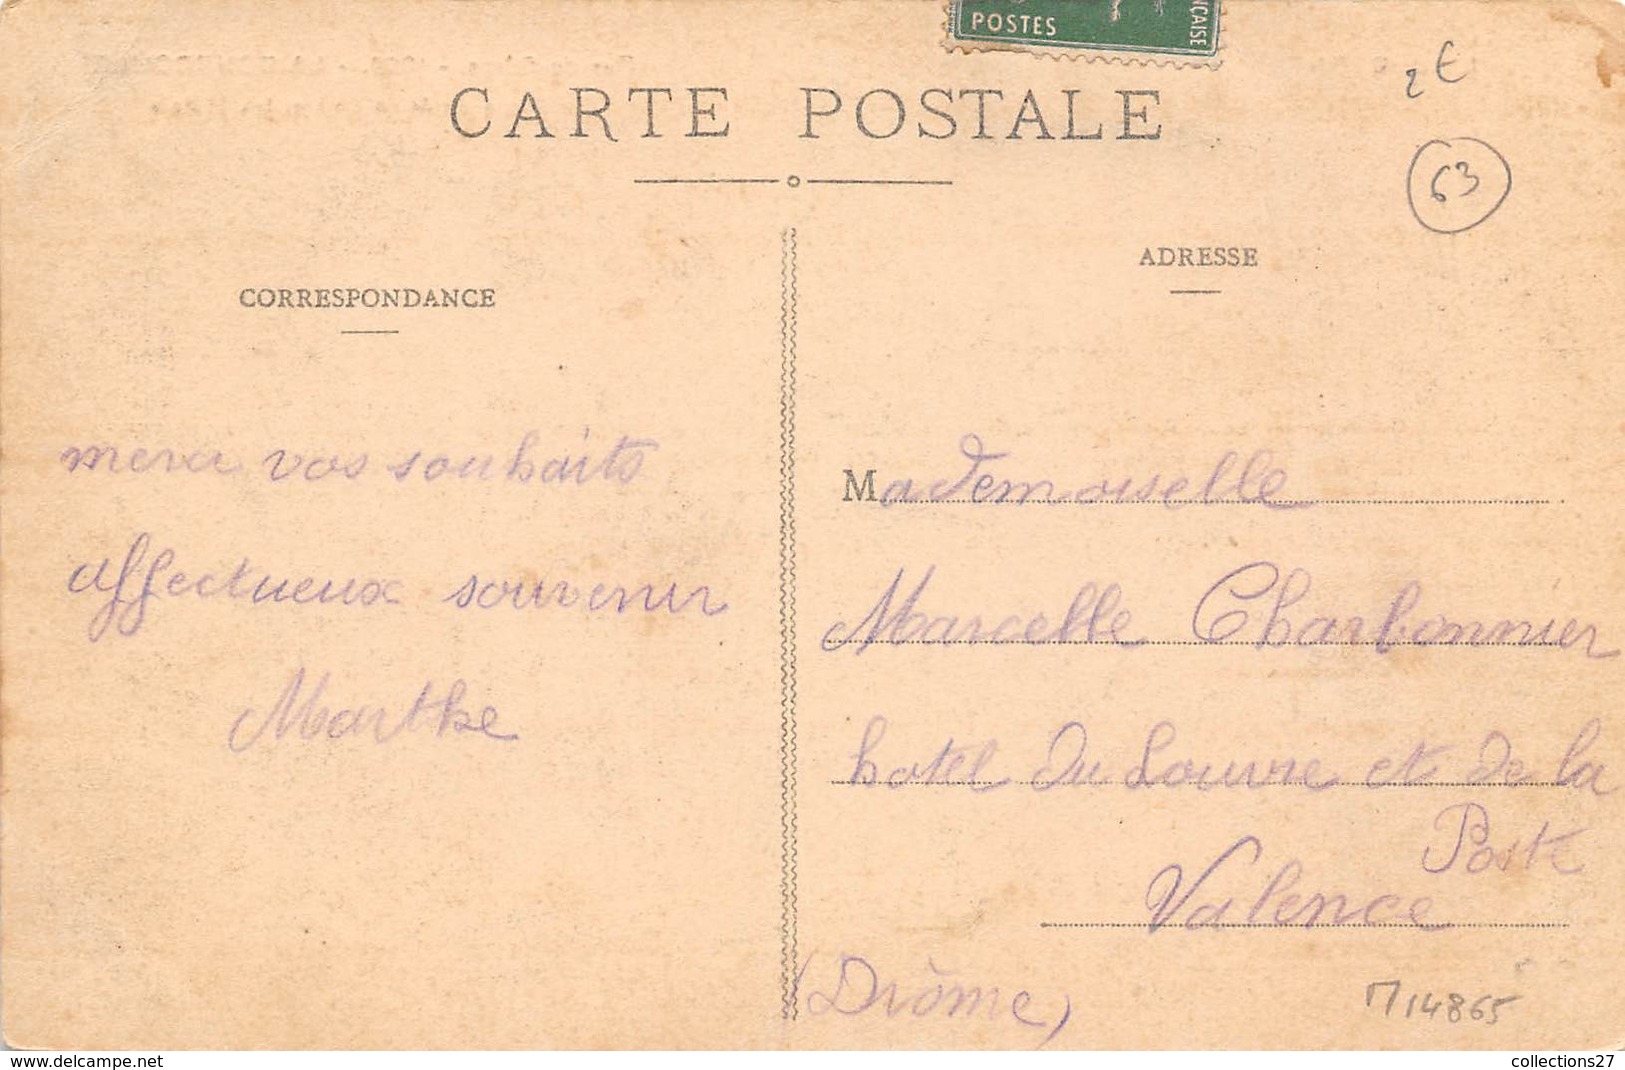 POSTES
ÇAISE
2 €
CARTE POSTALE
63
ADRESSE
CORRESPONDANCE
merci vos souhaits
affectueux souvenir
Marthe
Mademoiselle
Marcelle Charbonnier
hotel du Louvre et de la
Poste
Valence
(Drôme)
M14865
collections27
www.delcampe.net